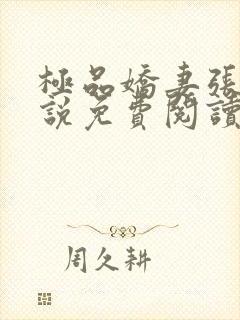 極品嬌妻張
說免費閱讀
周久耕